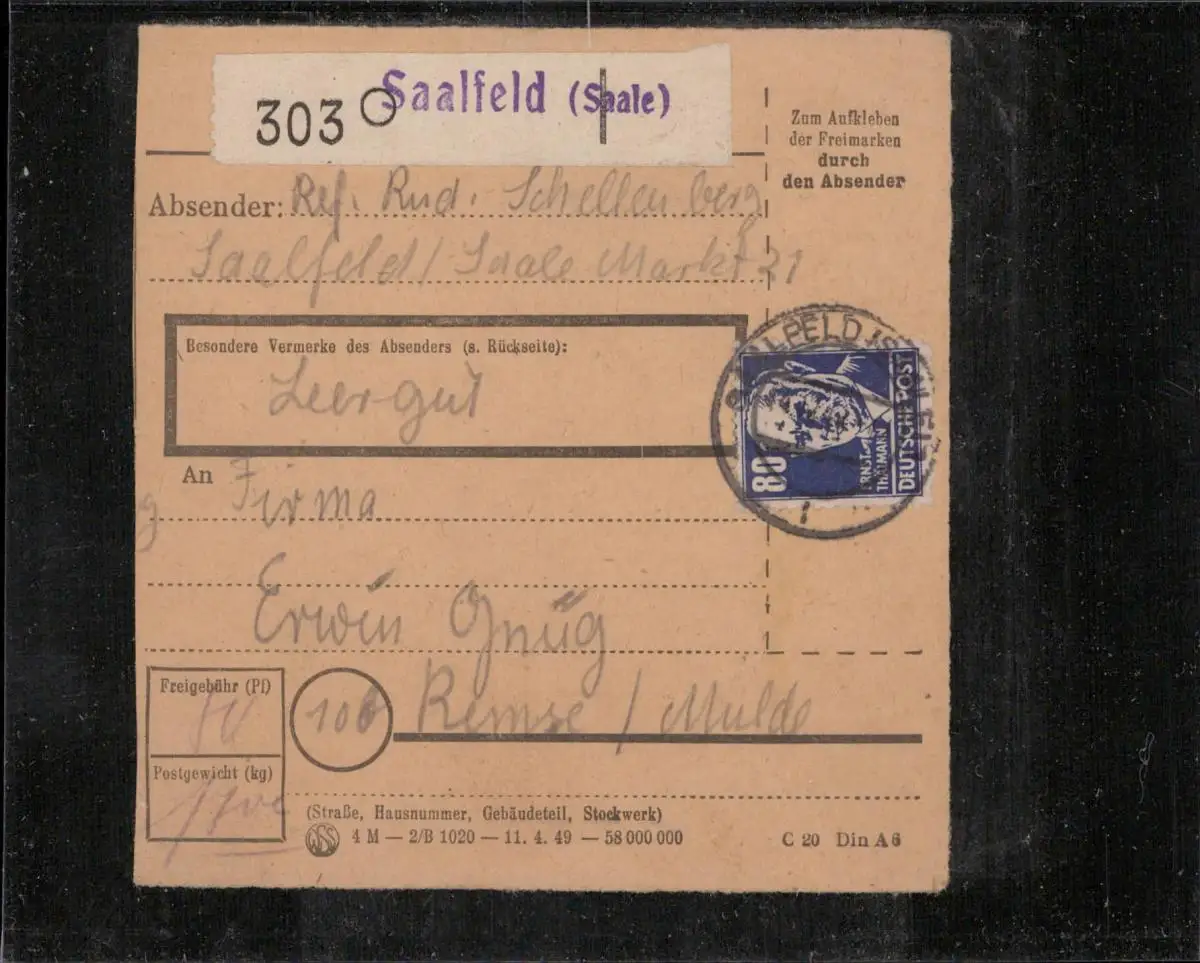 303 Saalfeld (Saale)
Zum Aufkleben
der Freimarken
durch
den Absender
Absender: Ref. Rud. Schellenberg
Saalfeld / Saale Markt 21
Besondere Vermerke des Absenders (s. Rückseite):
Leergut
SAALFELD (SAALE)
80
ERNST
THÄLMANN
DEUTSCHE POST
An Firma
Erwin Gnüg
Freigebühr (Pf)
80
10b Remse / Mulde
Postgewicht (kg)
(Straße, Hausnummer, Gebäudeteil, Stockwerk)
4 M — 2/B 1020 — 11. 4. 49 — 58 000 000
C 20 Din A 6